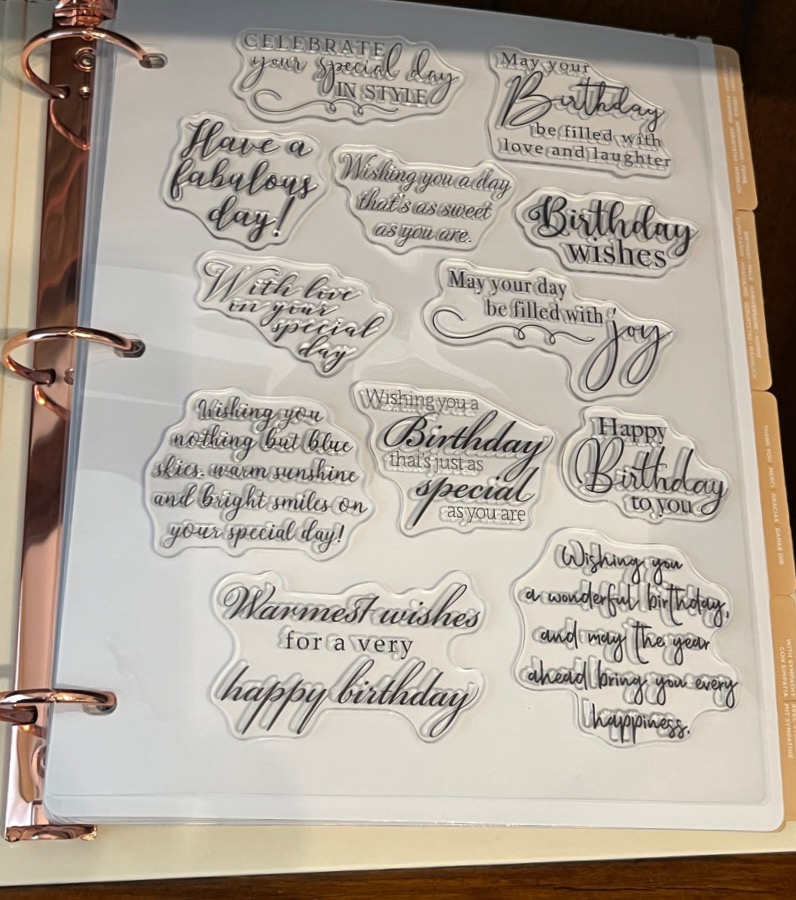 CELEBRATE
your special day
IN STYLE
May your
Birthday
be filled with
love and laughter
Have a
fabulous
day!
Wishing you a day
that's as sweet
as you are.
Birthday
wishes
With love
on your
special
day
May your day
be filled with
joy
Wishing you
nothing but blue
skies, warm sunshine
and bright smiles on
your special day!
Wishing you a
Birthday
that's just as
special
as you are
Happy
Birthday
to you
Warmest wishes
for a very
happy birthday
Wishing you
a wonderful birthday,
and may the year
ahead bring you every
happiness.
THANK YOU MERCI GRACIAS DANKE DIR
WITH SYMPATHY
CON SIMPATIA MIT SYMPATHIE